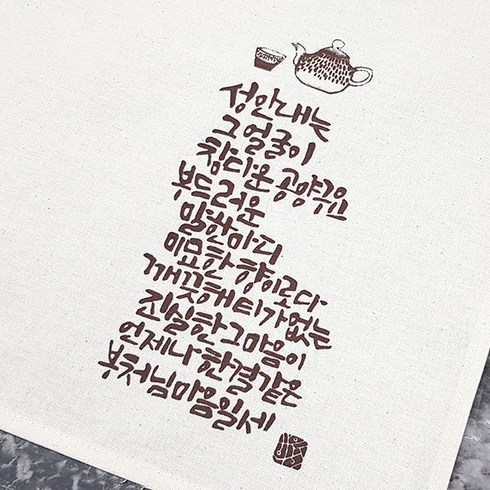 성안내는
그 얼굴이
참다운 공양구요
부드러운
말한마디
미묘한 향이로다
깨끗해 티가 없는
진실한 그 마음이
언제나 한결같은
부처님 마음일세